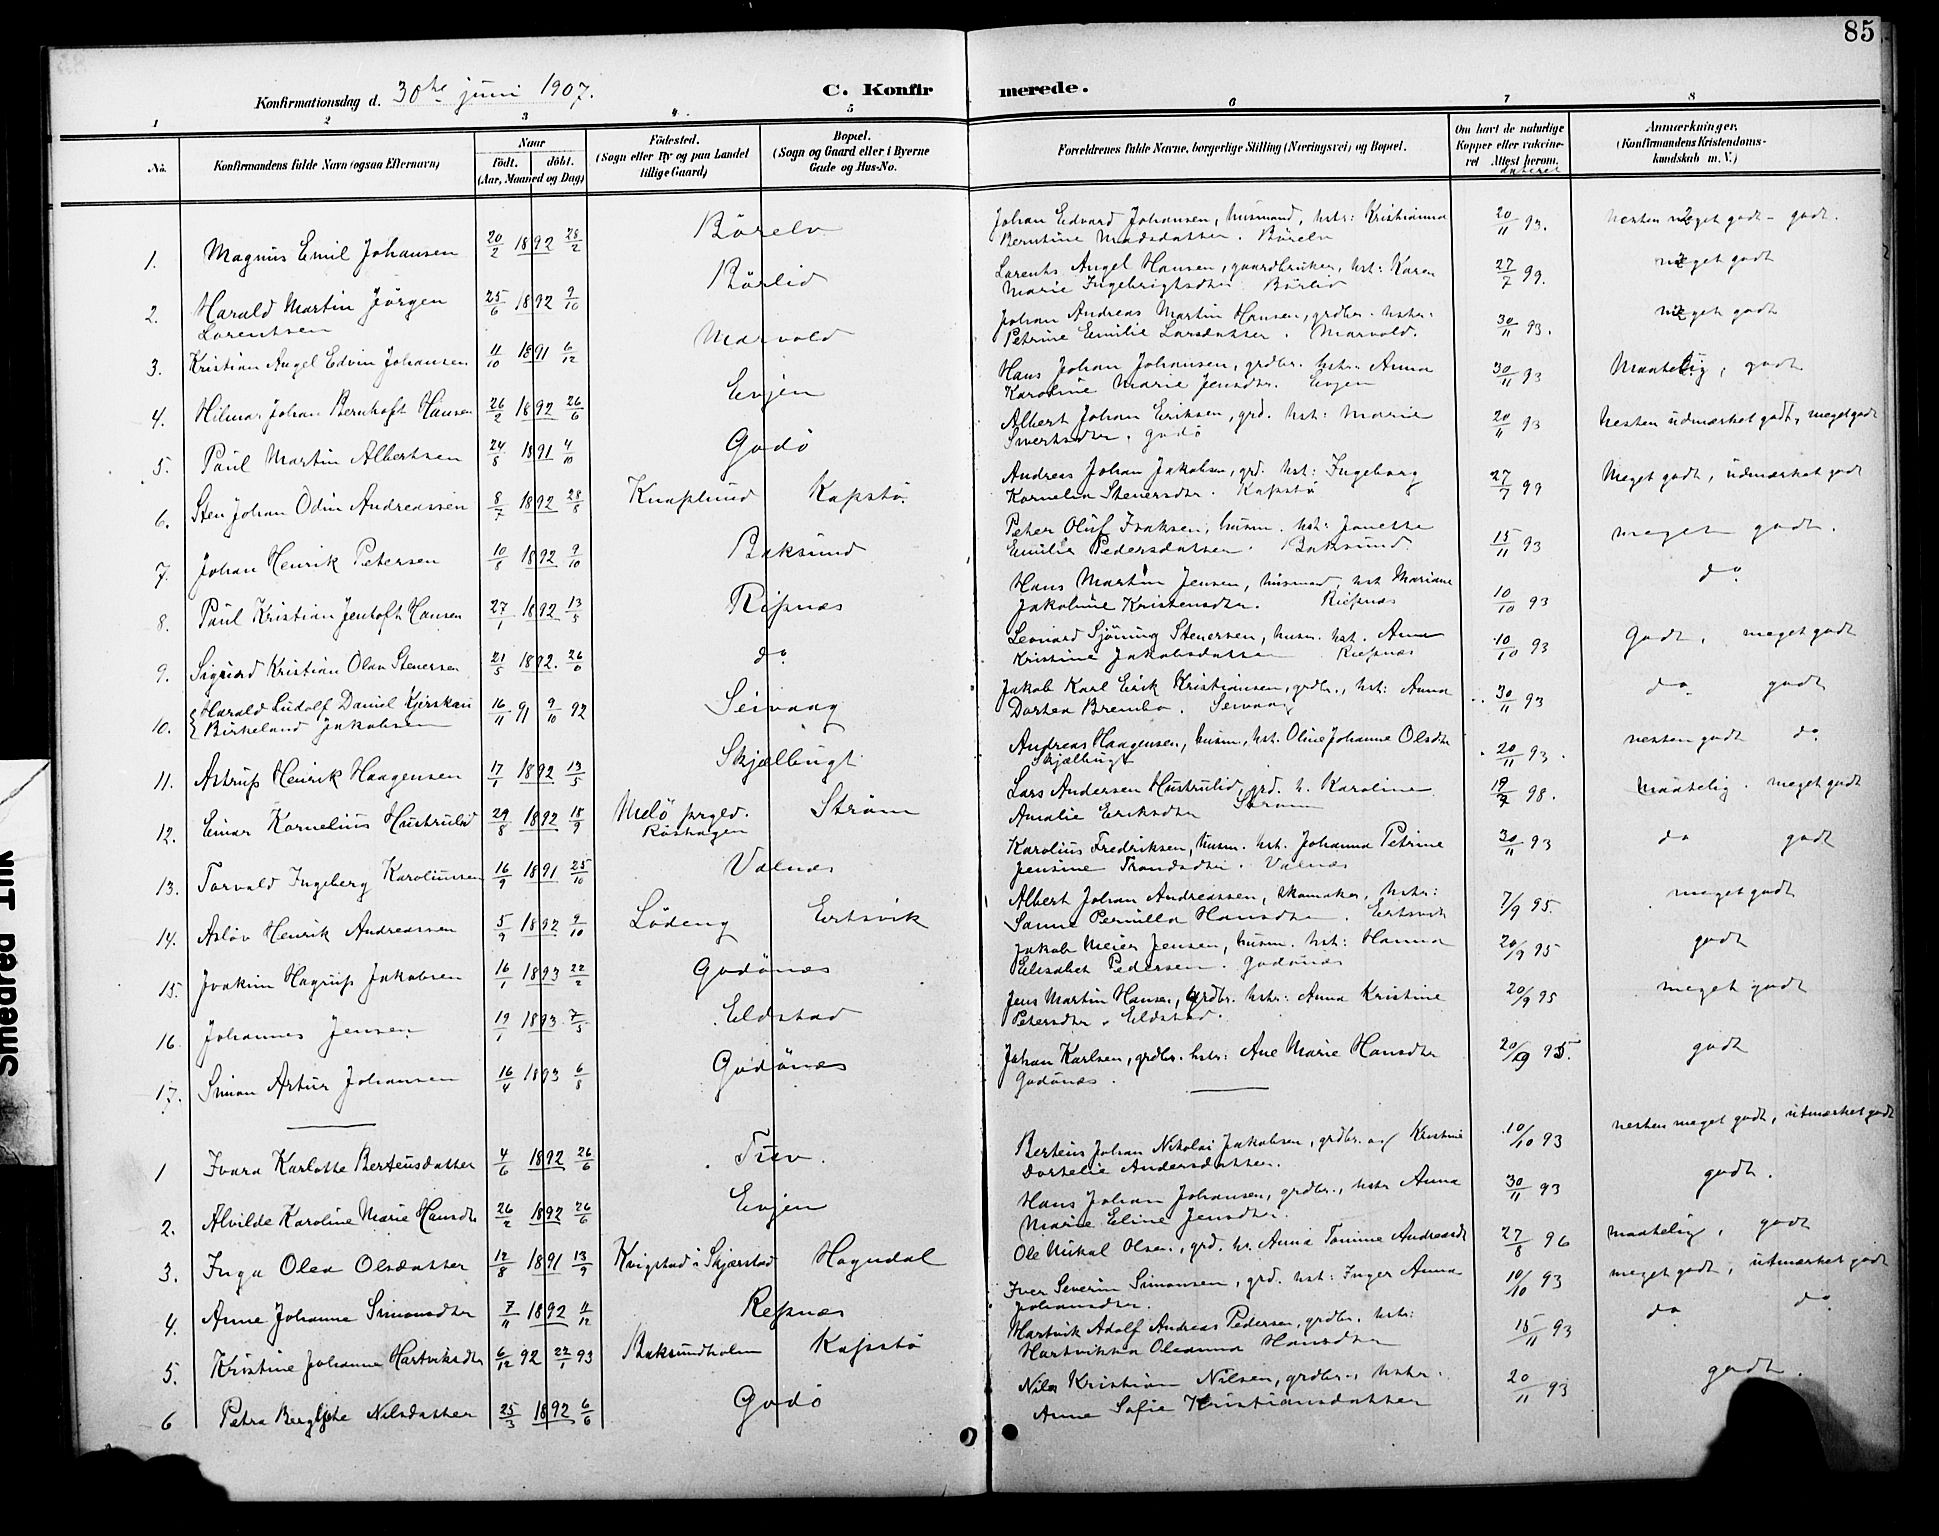 85
Konfirmationsdag d. 30te juni 1907.
C. Konfirmerede.
1 2 3 4. 5 6 7 8
No.
Konfirmandens fulde Navn (ogsaa Efternavn)
Naar
født. døbt.
(Aar, Maaned og Dag)
Fødested.
(Sogn eller By og paa Landet
tillige Gaard)
Bopæl.
(Sogn og Gaard eller i Byerne
Gade og Hus-No.
Forældrenes fulde Navne, borgerlige Stilling (Næringsvei) og Bopæl.
Om havt de naturlige
Kopper eller vaksine-
ret Attest herom.
dateret
Anmærkninger.
(Konfirmandens Kristendoms-
kundskab m. V.)
1. Magnus Emil Johansen 20/2 1892 28/2 Börelv Johan Edvard Johansen, husmand, hstr: Kristianna 20/11 93. nesten meget godt - godt.
Berntine Madsdatter. Börelv
2. Harald Martin Jörgen 25/6 1892 9/10 Börlid Lorents Angel Hansen, gaardbruker, hst: Karen 27/7 99. meget godt
Lorentsen Marie Ingebrigtsdtr. Börlid
3. Kristian Angel Edvin Johansen 11/10 1891 6/12 Marvold Johan Andreas Martin Hansen, grdbr. hstr: 30/11 93. meget godt
Petrine Emilie Larsdatter. Marvold.
4. Hilmar Johan Bernhoft Hansen 26/2 1892 26/6 Evjen Hans Johan Johansen, grdbr. hstr. Anna 30/11 93 Maatelig, godt
Karoline Marie Jensdtr. Evjen
5. Paul Martin Albertsen 24/8 1891 4/10 Godö Albert Johan Eriksen, grd. hst: Marie 20/11 93 Nesten udmærket godt, meget godt
Sivertsdtr. Godö
6. Sten Johan Odin Andreassen 8/7 1892 28/8 Knaplund Kapstö. Andreas Johan Jakobsen, grd. hst: Ingeborg 27/7 99 Meget godt, udmærket godt
Kornelia Stenersdtr. Kapstö
7. Johan Henrik Petersen 10/8 1892 9/10 Baksund Peter Oluf Isaksen, husm. hst: Janette 15/11 93 meget godt.
Emilie Pedersdatter. Baksund.
8. Paul Kristian Jentoft Hansen 27/1 1892 13/5 Ripnæs Hans Martin Jensen, husmand, hst Mariane 10/10 93 do
Jakobine Kristensdtr. Ripnæs
9. Sigurd Kristian Olav Stenersen 21/5 1892. 26/6 do Leonard Sjöning Stenersen, husm. hst. Anna 10/10 93 Godt, meget godt
Kristine Jakobsdatter Ripnæs
10. Harald Ludolf Daniel Kjerskau 16/11 91 9/10 92 Seivaag Jakob Karl Erik Kristiansen, grdbr., hst: Anna 30/11 93 do godt
Birkeland Jakobsen Dortea Brembo. Seivaag
11. Astrup Henrik Haagensen 17/1 1892 13/5 Skjælbugt Andreas Haagensen, husm., hst. Oline Johanne Olsdtr 20/11 93. nesten godt do
Skjælbugt
12. Einar Kornelius Hustrulid 29/8 1892 18/9 Melö prgld. Ström Lars Andersen Hustrulid, grd. h. Karoline 19/7 98. maatelig. meget godt
Röshagen Amalie Eriksdtr Ström
13. Torvald Ingeberg Karoliussen 16/9 1891 25/10 Valnæs Karolius Fredriksen, husm. hst. Johanna Petrine 30/11 93 do godt
Jensine Trondsdtr. Valnæs
14. Asløv Henrik Andreassen 5/9 1892 9/10 Lödeng Eertsvik Albert Johan Andreassen, skomaker, hstr: 7/9 95. meget godt
Sanna Pernilla Hansdtr. Eertsvik
15. Joakim Hagrup Jakobsen 16/1 1893 22/2 Godönæs Jakob Meier Jensen, husm. hst: Hanna 20/9 95 godt
Elisabet Pedersen. Godönæs
16. Johannes Jensen 19/1 1893. 7/5 Eldstad Jens Martin Hansen, grdbr. hstr: Anna Kristine 20/9 95 meget godt
Petersdtr. Eldstad.
17. Simon Artur Johansen 16/4 1893 6/8 Godönæs Johan Karlsen, grdbr. hstr: Ane Marie Hansdtr 20/9 95. godt
Godönæs.
1 Ivara Karlotte Berteusdatter 4/6 1892 26/6 Tuv. Berteus Johan Nikolai Jakobsen, grdbr. og Kristine 10/10 93 nesten meget godt, utmærket godt
Dortelie Andersdatter.
2. Alvilde Karoline Marie Hansdtr 26/2 1892 26/6 Evjen Hans Johan Johansen, grdbr., hstr Anna 30/11 93 godt.
Marie Eline Jensdtr.
3. Inga Olea Olsdatter 12/8 1891 13/9 Kvigstad i Skjerstad Hogndal Ole Mikal Olsen, grd. hr. Anna Tomine Andreasdt 27/8 96 maatelig, godt
4. Anne Johanne Simonsdtr 7/11 1892 11/12 Repnæs Iver Severin Simonsen, grd. hst: Inger Anna 10/10 93 meget godt, utmærket godt
Johansdtr.
5. Kristine Johanne Hartviksdtr 6/12 92 22/1 93 Baksundholm Kapstö Hartvik Adolf Andreas Pedersen, grdbr. hstr: 15/11 93 do do
Hartvikka Oleanna Hansdtr
6 Petra Bergljote Nilsdatter 25/3 1892 6/6 Godö Nils Kristian Nilsen, grdbr., hstr: 20/11 93 godt.
Anne Sofie Kristiansdatter
Smedrød Ink